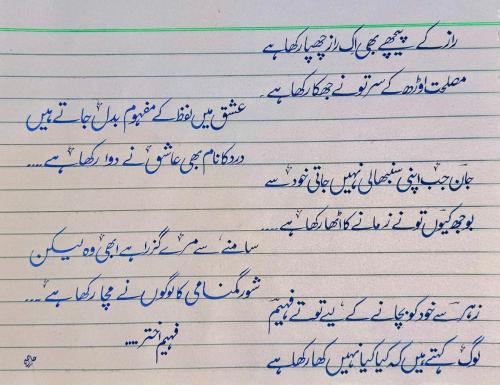 راز کے پیچھے بھی اک راز چھپا رکھا ہے
مصلحت اوڑھ کے سر تو نے جھکا رکھا ہے۔
عشق میں لفظ کے مفہوم بدل جاتے ہیں
درد کا نام بھی عاشق نے دوا رکھا ہے....
جان جب اپنی سنبھالی نہیں جاتی خود سے
بوجھ کیوں تو نے زمانے کا اٹھا رکھا ہے....
سامنے سے مرے گزرا ہے ابھی وہ لیکن
شور گمنامی کا لوگوں نے مچا رکھا ہے....
زہر سے خود کو بچانے کے لیے تو نے فہیم
لوگ کہتے ہیں کہ کیا کیا نہیں کھا رکھا ہے
فہیم اختر....